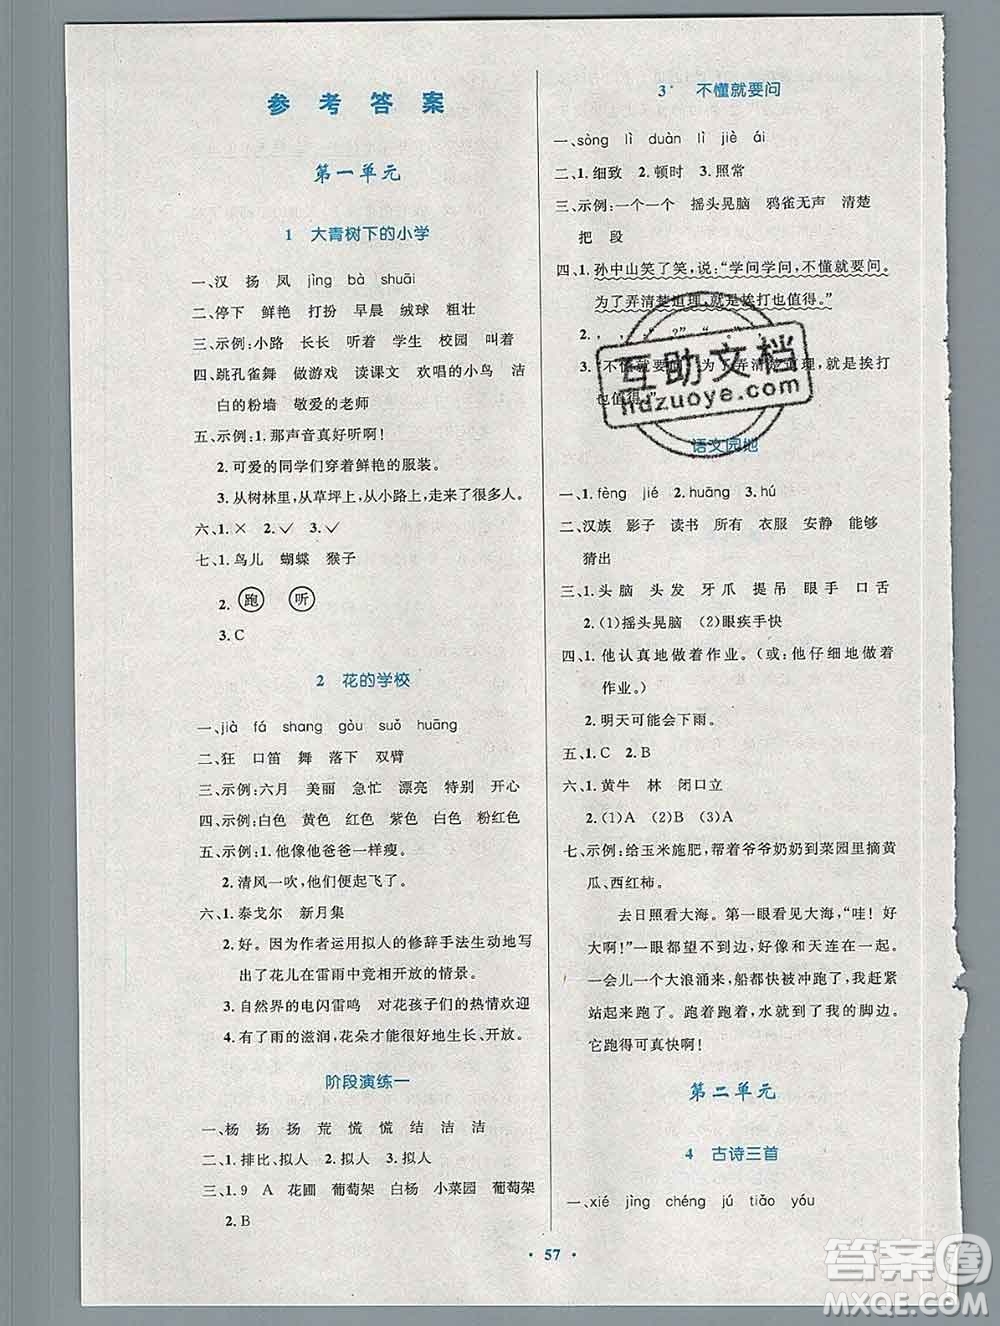 参考答案
第一单元
1 大青树下的小学
一、汉 扬 凤 jìng bà shuāi
二、停下 鲜艳 打扮 早晨 绒球 粗壮
三、示例:小路 长长 听着 学生 校园 叫着
四、跳孔雀舞 做游戏 读课文 欢唱的小鸟 洁
白的粉墙 敬爱的老师
五、示例:1.那声音真好听啊!
2.可爱的同学们穿着鲜艳的服装。
3.从树林里,从草坪上,从小路上,走来了很多人。
六、1.× 2.✓ 3.✓
七、1.鸟儿 蝴蝶 猴子
2. 跑 听
3.C
2 花的学校
一、jià fá shang gòu suǒ huāng
二、狂 口笛 舞 落下 双臂
三、示例:六月 美丽 急忙 漂亮 特别 开心
四、示例:白色 黄色 红色 紫色 白色 粉红色
五、示例:1.他像他爸爸一样瘦。
2.清风一吹,他们便起飞了。
六、1.泰戈尔 新月集
2.好。因为作者运用拟人的修辞手法生动地写
出了花儿在雷雨中竞相开放的情景。
3.自然界的电闪雷鸣 对花孩子们的热情欢迎
4.有了雨的滋润,花朵才能很好地生长、开放。
阶段演练一
一、杨 扬 扬 荒 慌 慌 结 洁 洁
二、1.排比、拟人 2.拟人 3.拟人
三、1.9 A 花圃 葡萄架 白杨 小菜园 葡萄架
2.B
3* 不懂就要问
一、sòng lì duàn lì jiè ái
二、1.细致 2.顿时 3.照常
三、示例:一个一个 摇头晃脑 鸦雀无声 清楚
把 段
四、1.孙中山笑了笑,说:“学问学问,不懂就要问。
为了弄清楚道理,就是挨打也值得。”
2. , , , ?” “ , ,
3.“不懂就要问 为了弄清楚道理,就是挨打
也值得。”
互助文档
hdzuoye.com
语文园地
一、1.fèng jié 2.huāng 3.hú
二、汉族 影子 读书 所有 衣服 安静 能够
猜出
三、1.头脑 头发 牙爪 提吊 眼手 口舌
2.(1)摇头晃脑 (2)眼疾手快
四、1.他认真地做着作业。(或:他仔细地做着
作业。)
2.明天可能会下雨。
五、1.C 2.B
六、1.黄牛 林 闭口立
2.(1)A (2)B (3)A
七、示例:给玉米施肥,帮着爷爷奶奶到菜园里摘黄
瓜、西红柿。
去日照看大海。第一眼看见大海,“哇!好
大啊!”一眼都望不到边,好像和天连在一起。
一会儿一个大浪涌来,船都快被冲跑了,我赶紧
站起来跑了。跑着跑着,水就到了我的脚边。
它跑得可真快啊!
第二单元
4 古诗三首
一、xié jìng chéng jú tiǎo yóu
· 57 ·
答案圈
MXQE.COM